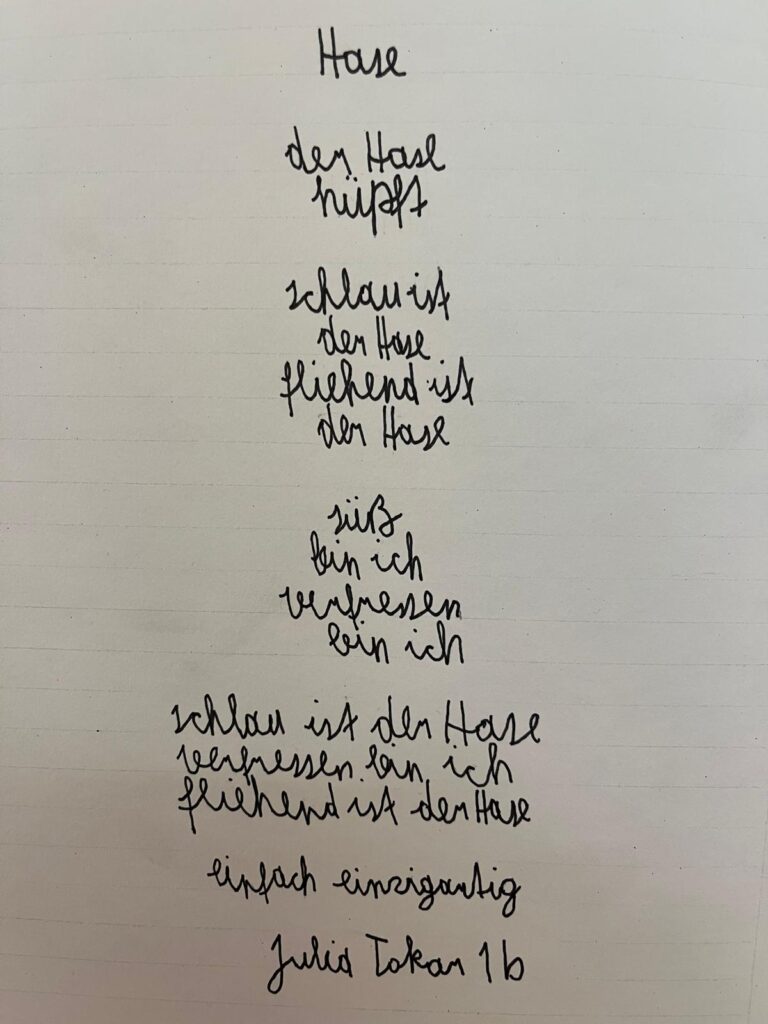 Hase
der Hase
hüpft
schlau ist
der Hase
fliehend ist
der Hase
süß
bin ich
verfressen
bin ich
schlau ist der Hase
verfressen bin ich
fliehend ist der Hase
einfach einzigartig
Julia Tokar 1b